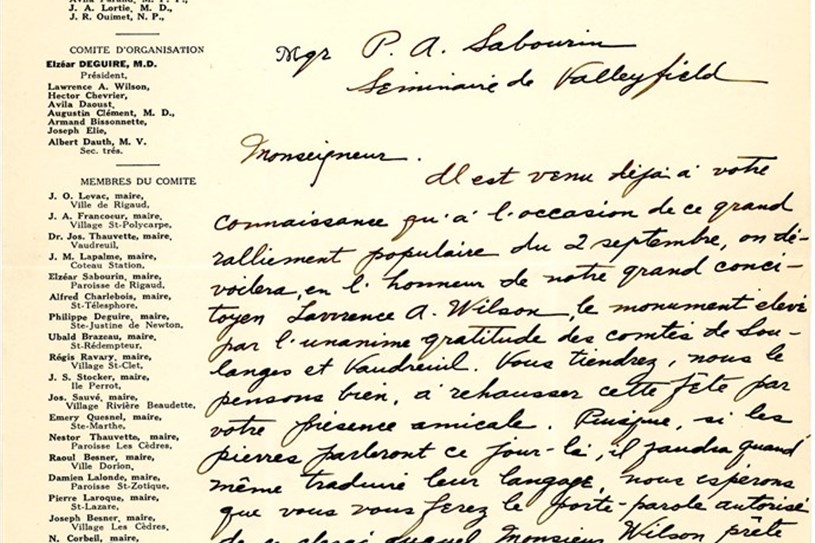 J. A. Lortie, M. D.,
J. R. Ouimet, N. P.,
COMITE D'ORGANISATION
Elzéar DEGUIRE, M.D.
Président,
Lawrence A. Wilson,
Hector Chevrier,
Avila Daoust,
Augustin Clément, M. D.,
Armand Bissonnette,
Joseph Elie,
Albert Dauth, M. V.
Sec. trés.
MEMBRES DU COMITE
J. O. Levac, maire,
Ville de Rigaud,
J. A. Francoeur, maire,
Village St-Polycarpe,
Dr. Jos. Thauvette, maire,
Vaudreuil,
J. M. Lapalme, maire,
Coteau Station,
Elzéar Sabourin, maire,
Paroisse de Rigaud,
Alfred Charlebois, maire,
St-Télesphore,
Philippe Deguire, maire,
Ste-Justine de Newton,
Ubald Brazeau, maire,
St-Rédempteur,
Régis Ravary, maire,
Village St-Clet,
J. S. Stocker, maire,
Ile Perrot,
Jos. Sauvé, maire,
Village Rivière Beaudette,
Emery Quesnel, maire,
Ste-Marthe,
Nestor Thauvette, maire,
Paroisse Les Cèdres,
Raoul Besner, maire,
Ville Dorion,
Damien Lalonde, maire,
Paroisse St-Zotique,
Pierre Laroque, maire,
St-Lazare,
Joseph Besner, maire,
Village Les Cèdres,
N. Corbeil, maire,
Mgr P. A. Sabourin
Séminaire de Valleyfield
Monseigneur.
Il est venu déjà à votre
connaissance qu'à l'occasion de ce grand
ralliement populaire du 2 septembre, on dé-
voilera, en l'honneur de notre grand conci-
toyen Lawrence A. Wilson, le monument élevé
par l'unanime gratitude des comtés de Sou-
langes et Vaudreuil. Vous tiendrez, nous le
pensons bien, à rehausser cette fête par
votre présence amicale. Puisque, si les
pierres parleront ce jour-là, il faudra quand
même traduire leur langage, nous espérons
que vous vous ferez le porte-parole autorisé
de ce clergé auquel Monsieur Wilson prête